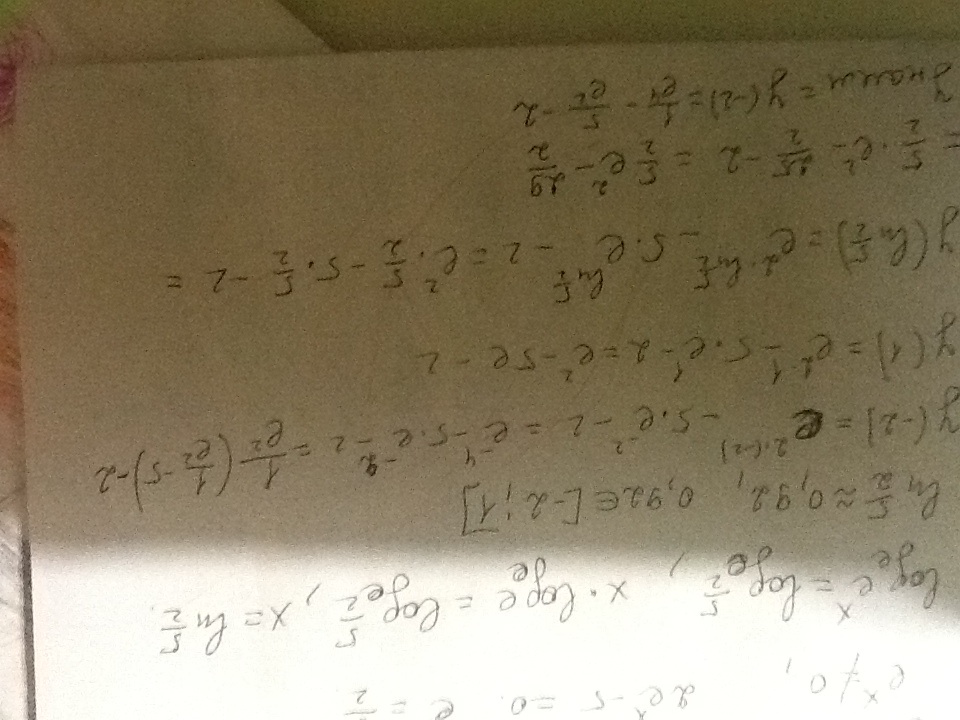 e^x ≠ 0, 2e^x - 5 = 0. e^x = 5/2.
log_e e^x = log_e 5/2, x · log_e e = log_e 5/2, x = ln 5/2.
ln 5/2 ≈ 0,92, 0,92 ∈ [-2; 1]
y(-2) = e^{2·(-2)} - 5·e^{-2} - 2 = e^{-4} - 5·e^{-2} - 2 = 1/e^2 (1/e^2 - 5) - 2
y(1) = e^{2·1} - 5·e^1 - 2 = e^2 - 5e - 2
y(ln 5/2) = e^{2·ln 5/2} - 5·e^{ln 5/2} - 2 = e^2 · 5/2 - 5 · 5/2 - 2 =
= 5/2 · e^2 - 25/2 - 2 = 5/2 e^2 - 29/2
y наим = y(-2) = 1/e^4 - 5/e^2 - 2